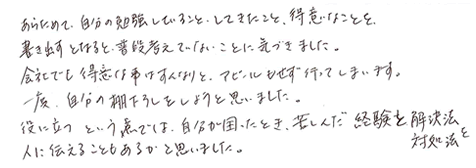 あらためて、自分の勉強していること、してきたこと、得意なことを、
書き出すとなると、普段考えていないことに気づきました。
会社でも得意な事はすんなりと、アピールもせず行ってしまいます。
一度、自分の棚下ろしをしようと思いました。
役に立つ という点では、自分が困ったとき、苦しんだ 経験を 解決法
人に伝えることもあるかと思いました。 対処法を